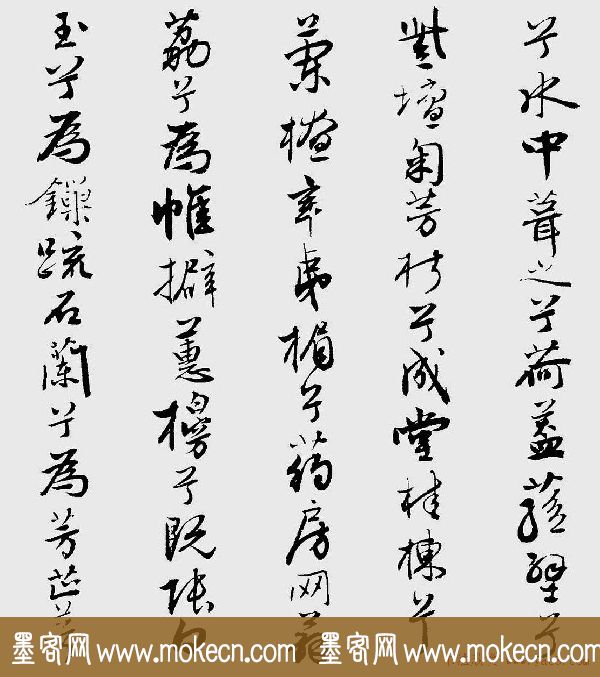 兮水中葺之兮荷蓋蓀壁兮
紫壇匊芳椒兮成堂桂棟兮
蘭橑辛夷楣兮药房网薜
荔兮為帷擗蕙櫋兮既張白
玉兮為鎮疏石蘭兮為芳芷葺
墨客网 www.mokecn.com 墨客网 www.mokecn.com